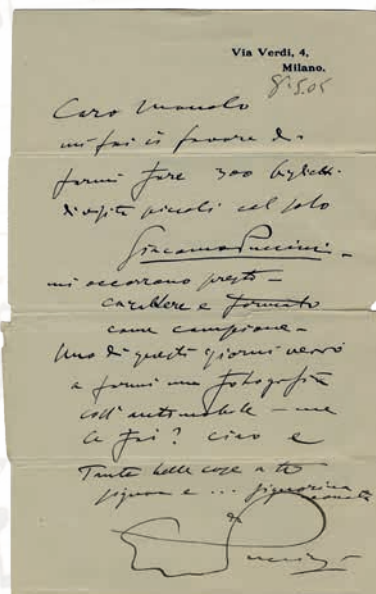 Via Verdi, 4,
Milano.
8.5.05
Caro Manolo
mi fai il favore di
farmi fare 300 biglietti
di visita piccoli col solo
Giacomo Puccini -
mi occorrono presto -
carattere e formato
come campione -
Uno di questi giorni verrò
a farmi una fotografia
coll'automobile - me
la fai? ciao e
Tante belle cose a te
signora e ... signorina
di
Puccini